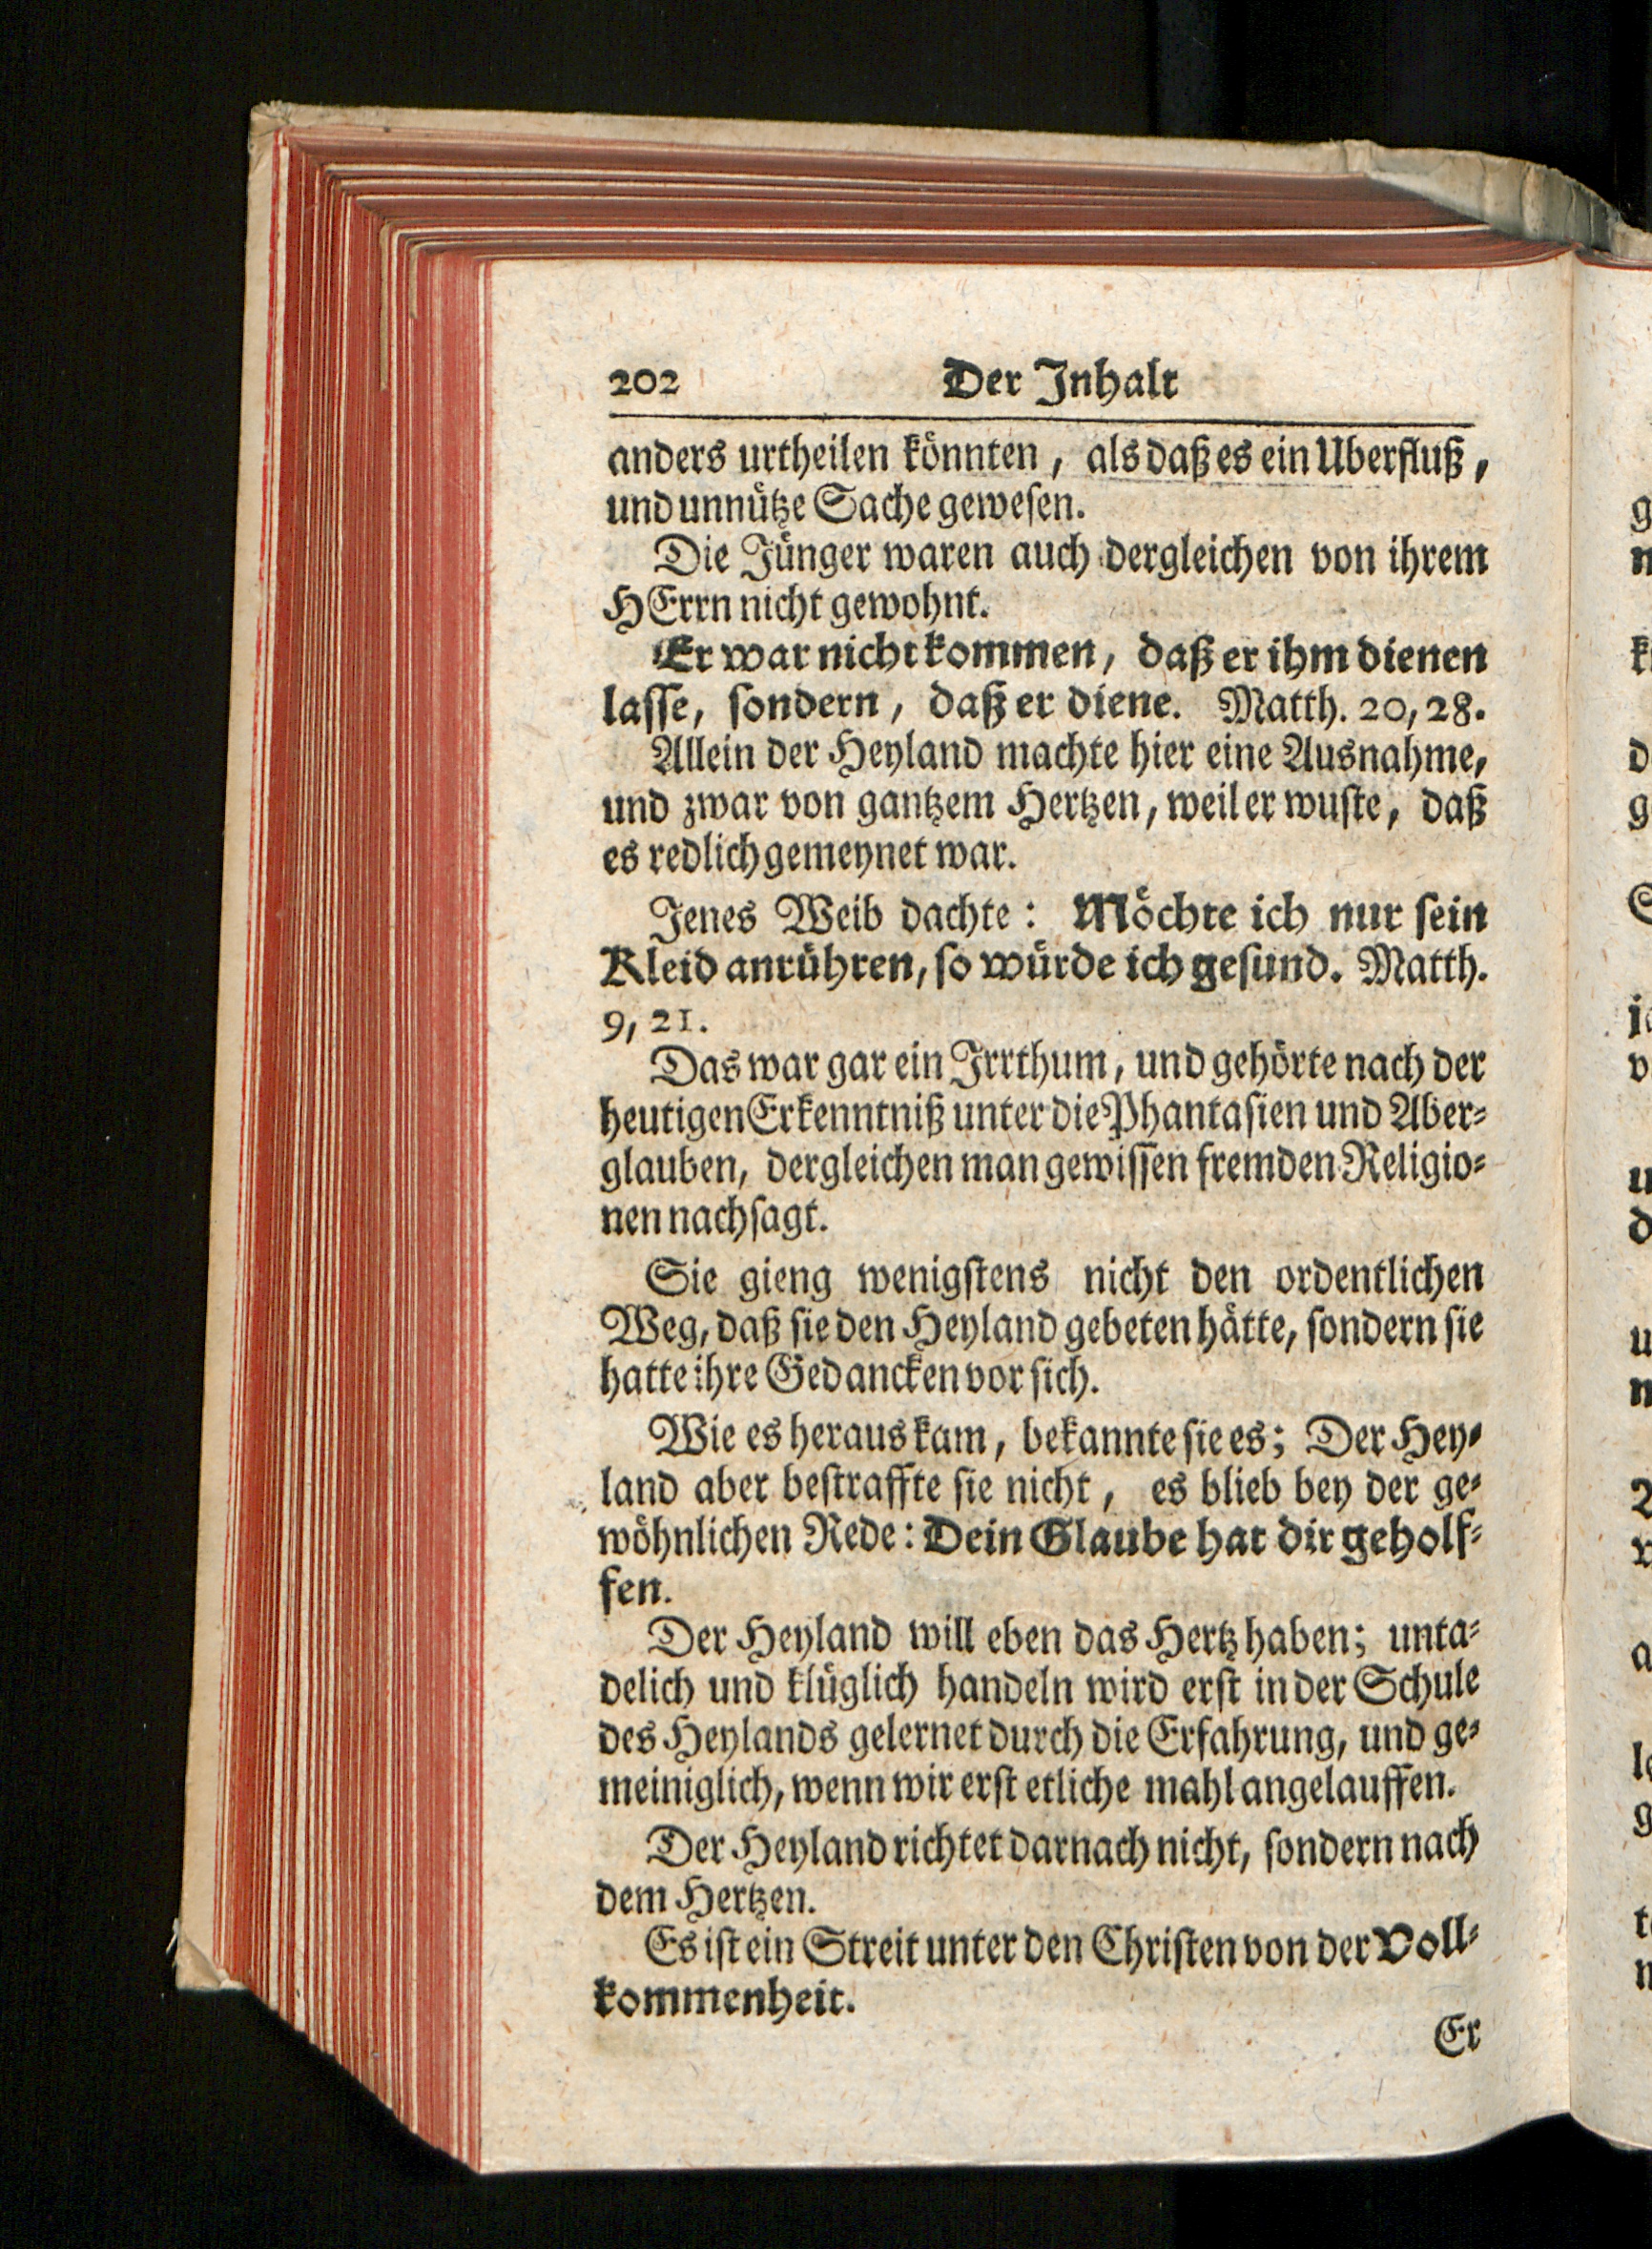 202 Der Inhalt
anders urtheilen könnten, als daß es ein Uberfluß,
und unnütze Sache gewesen.
Die Jünger waren auch dergleichen von ihrem
HErrn nicht gewohnt.
Er war nicht kommen, daß er ihm dienen
lasse, sondern, daß er diene. Matth. 20, 28.
Allein der Heyland machte hier eine Ausnahme,
und zwar von gantzem Hertzen, weil er wuste, daß
es redlich gemeynet war.
Jenes Weib dachte: Möchte ich nur sein
Kleid anrühren, so würde ich gesund. Matth.
9, 21.
Das war gar ein Irrthum, und gehörte nach der
heutigen Erkenntniß unter die Phantasien und Aber-
glauben, dergleichen man gewissen fremden Religio-
nen nachsagt.
Sie gieng wenigstens nicht den ordentlichen
Weg, daß sie den Heyland gebeten hätte, sondern sie
hatte ihre Gedancken vor sich.
Wie es heraus kam, bekannte sie es; Der Hey-
land aber bestraffte sie nicht, es blieb bey der ge-
wöhnlichen Rede: Dein Glaube hat dir geholf-
fen.
Der Heyland will eben das Hertz haben; unta-
delich und klüglich handeln wird erst in der Schule
des Heylands gelernet durch die Erfahrung, und ge-
meiniglich, wenn wir erst etliche mahl angelauffen.
Der Heyland richtet darnach nicht, sondern nach
dem Hertzen.
Es ist ein Streit unter den Christen von der Voll-
kommenheit.
Er